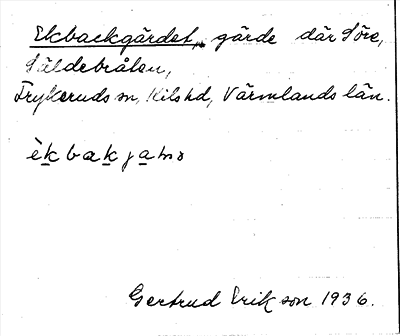 Ekbackgärdet, gärde där Söre,
Frykeruds sn, Kils hd, Värmlands län.
Gertrud Erikson 1936.